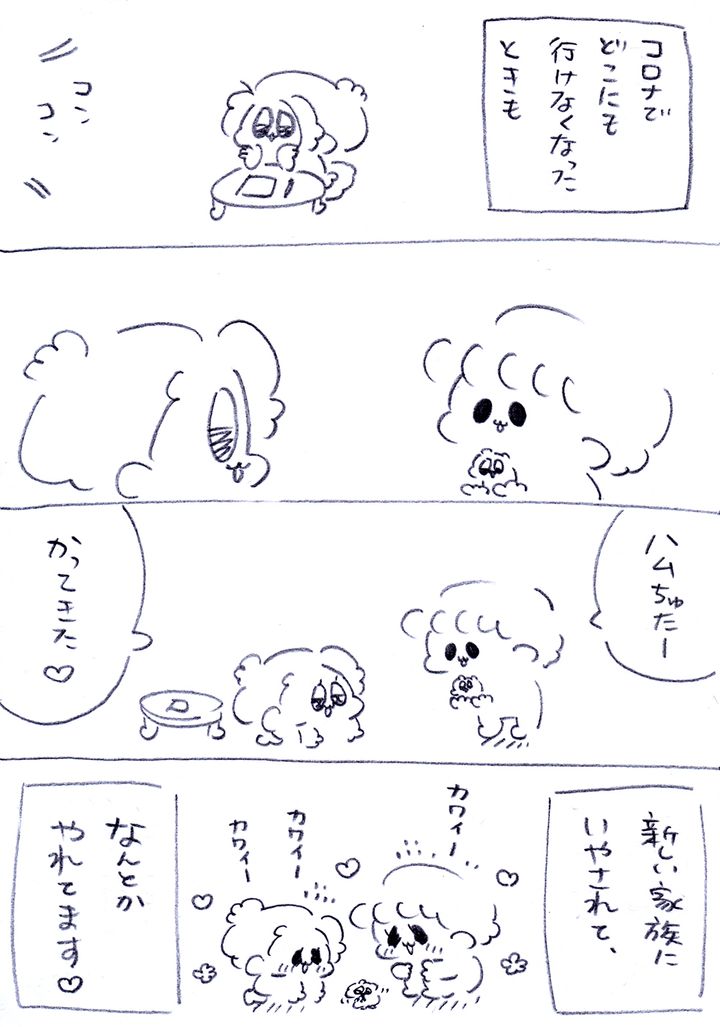 コロナで
どこにも
行けなくなった
ときも
コン
コン
ハムちゅたー
かってきた♡
新しい家族に
いやされて、
カワィー
カワィー
カワィー
なんとか
やれてます♡